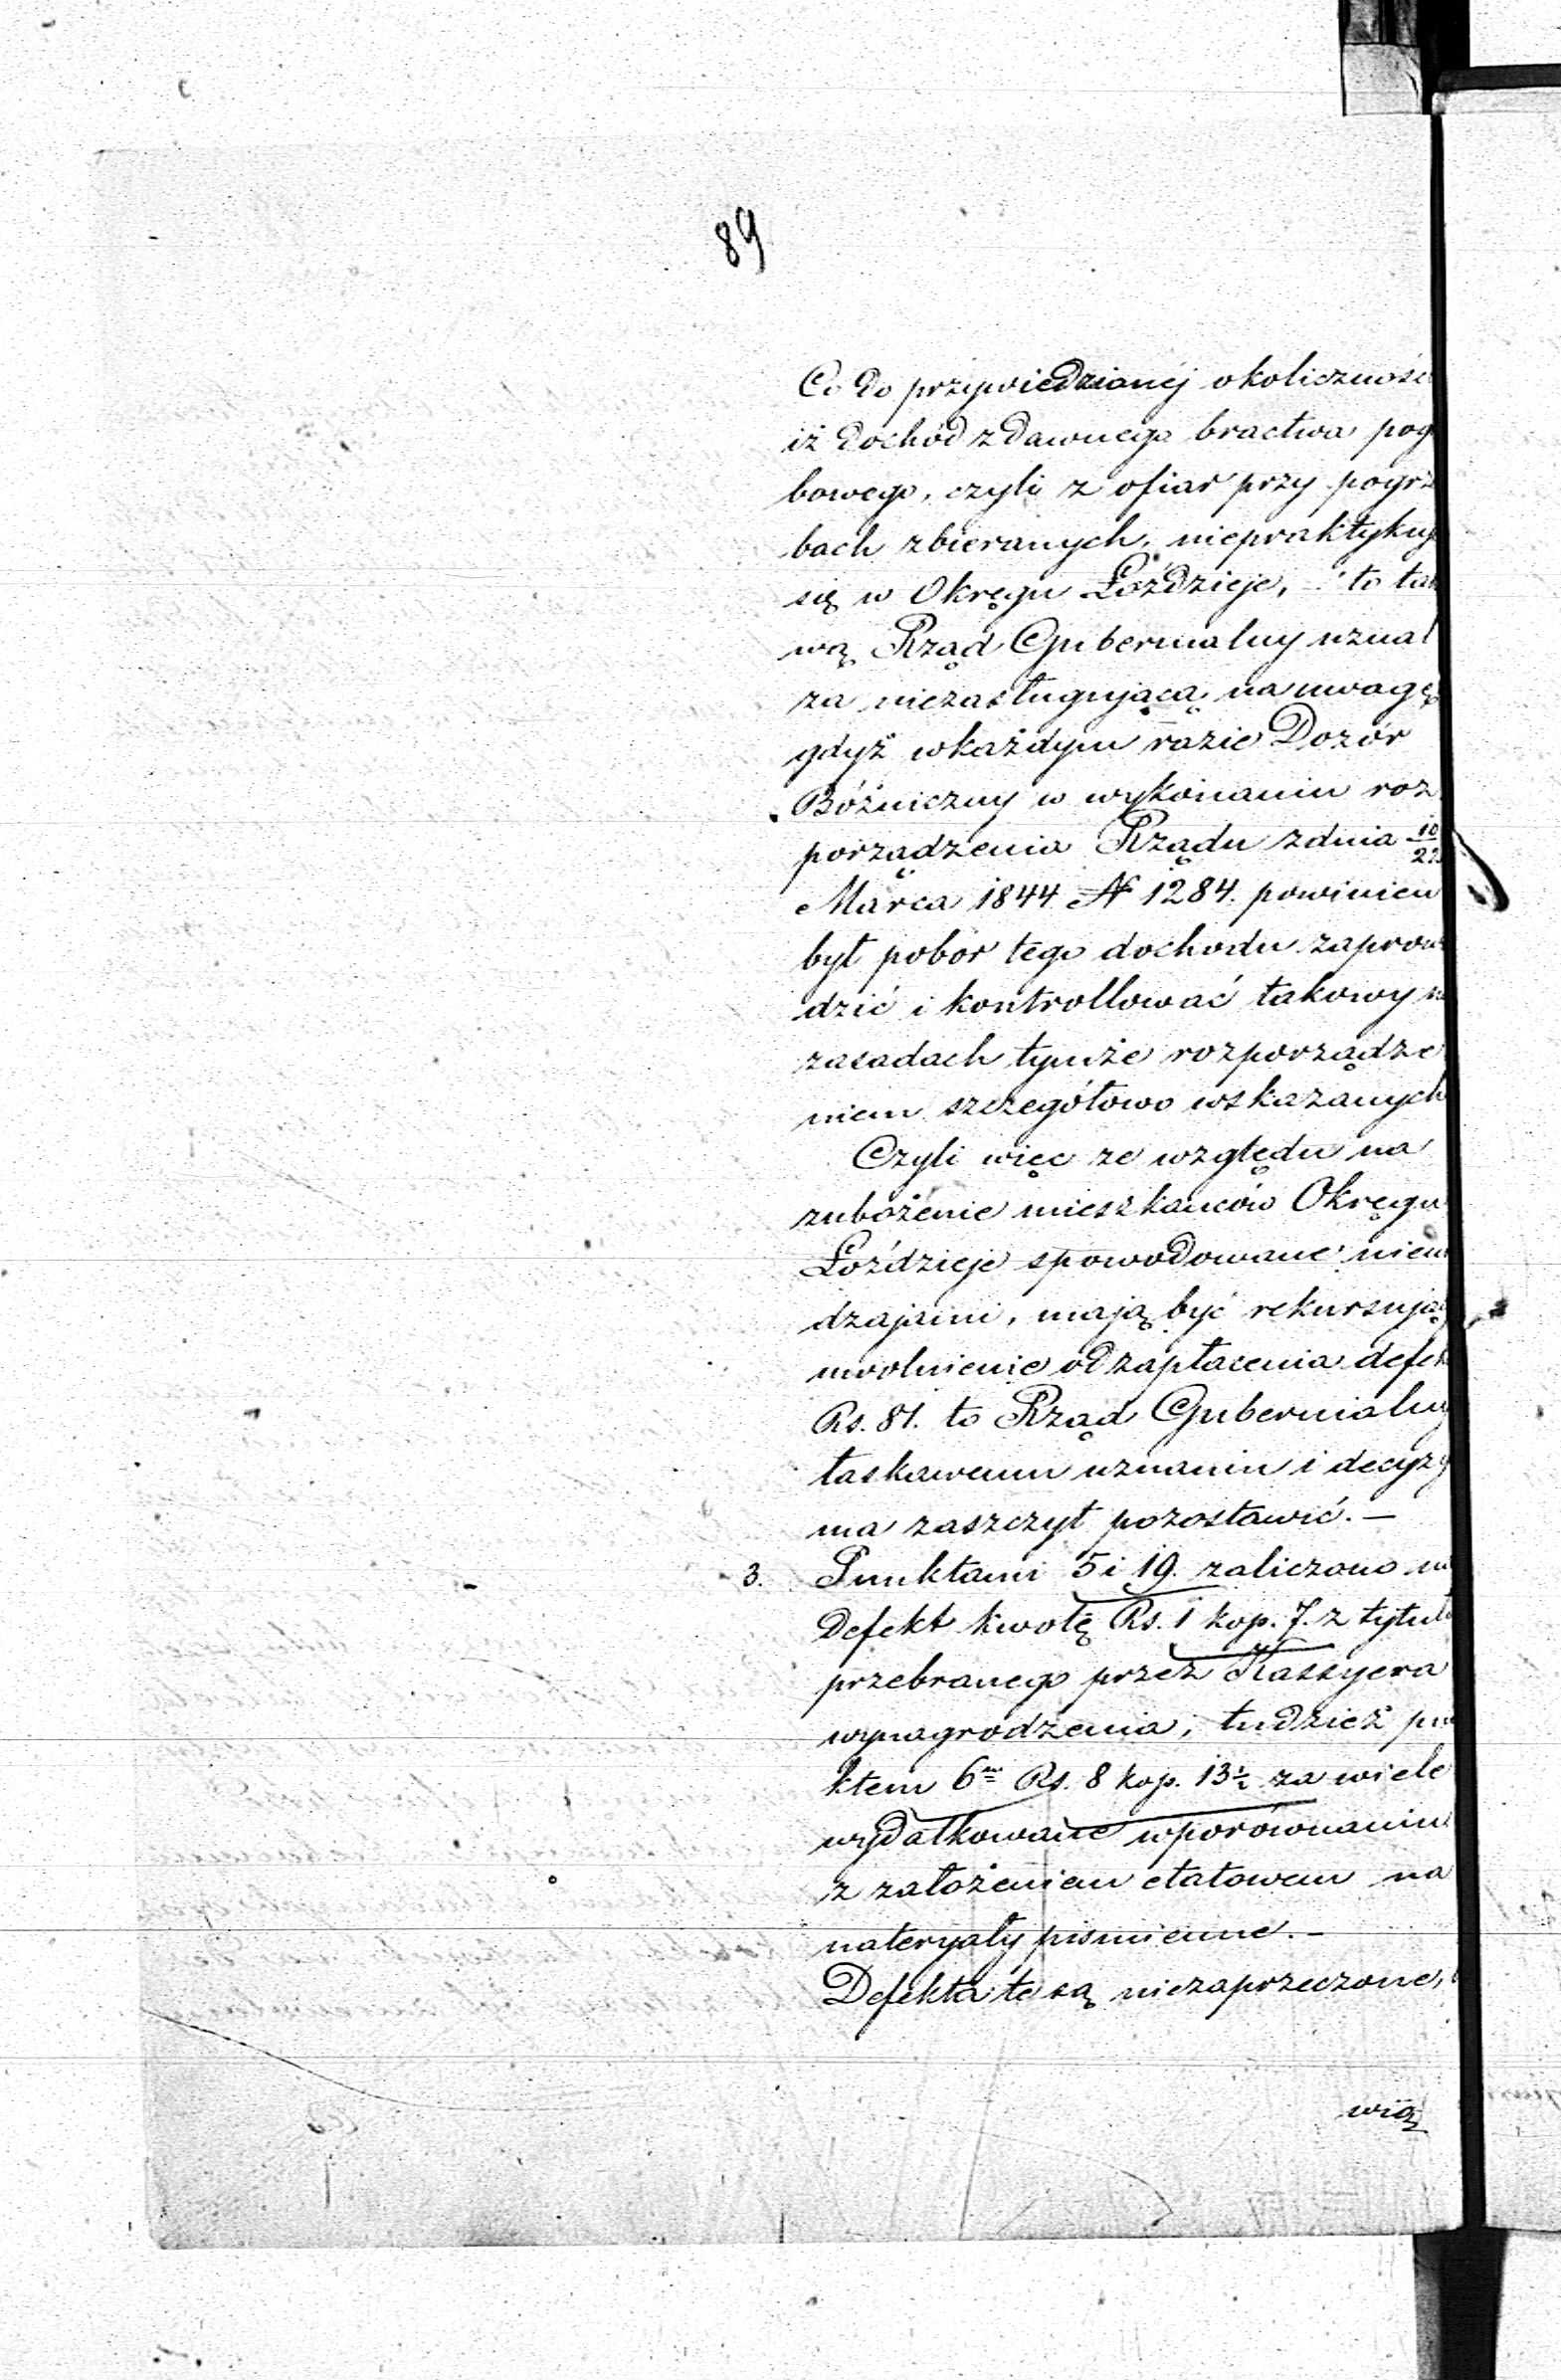 89
Co do przywiedzionéj okolicznośc
iż dochód z dawnego bractwa pog
bowego, czyli z ofiar przy pogrz
bach zbieranych, niepraktykuj
się w Okręgu Łoździeje, – to tak
wą Rząd Gubernialny uznał
za niezasługującą na uwagę
gdyż w każdym razie Dozór
Bóżniczny w wykonaniu roz
porządzenia Rządu z dnia 10/22
Marca 1844 N 1284. powinien
był pobór tego dochodu zaprow
dzić i kontrollować takowy n
zasadach tymże rozporządze
niem szczegółowo wskazanych
Czyli więc ze względu na
zubożenie mieszkańców Okręgu
Łoździeje spowodowane nieu
dzajami, mają być rekursując
uwolnienie od zapłacenia defek
Rs. 81. to Rząd Gubernialny
łaskawemu uznaniu i decyzy
ma zaszczyt pozostawić. –
3. Punktami 5 i 19. zaliczono n
Defekt kwotę Rs. 1 kop. 7. z tytuł
przebranego przez Kassyera
wynagrodzenia, tudzież pu
ktem 6m Rs. 8 kop. 13½ za wiele
wydatkowane w porównaniu
z założeniem etatowem na
materyały piśmienne. –
Defekta te są niezaprzeczone,
wią